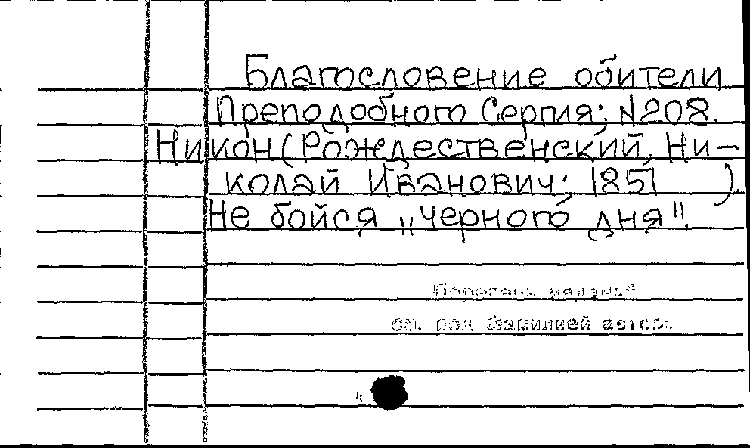 Благословение обители
Преподобного Сергия; №208.
Никон (Рождественский, Ни-
колай Иванович; 1851 ).
Не бойся „черного дня".
см. под фамилией автора.